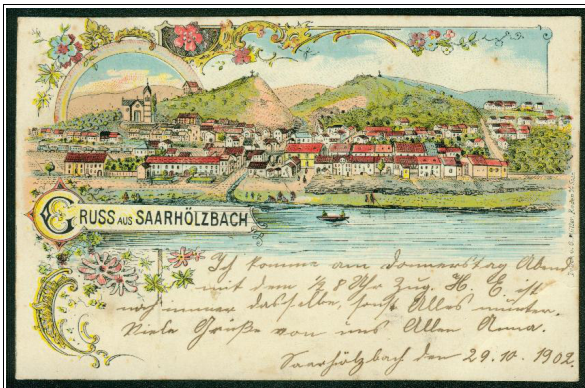 GRUSS AUS SAARHÖLZBACH
Ich komme am Donnerstag Abend
mit dem ½ 8 Uhr Zug. H. E. ist
noch immer dasselbe, sonst Alles munter.
Viele Grüße von uns Allen Anna.
Saarhölzbach den 29.10.1902.